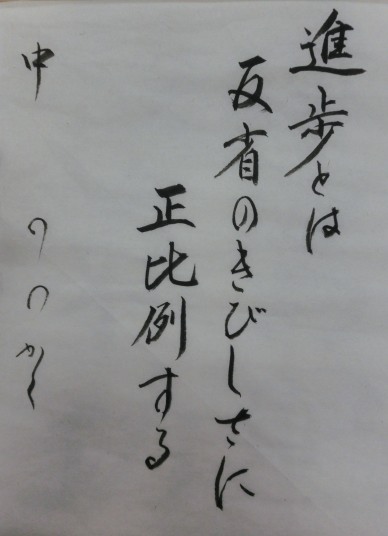 進歩とは
反省のきびしさに
正比例する
中